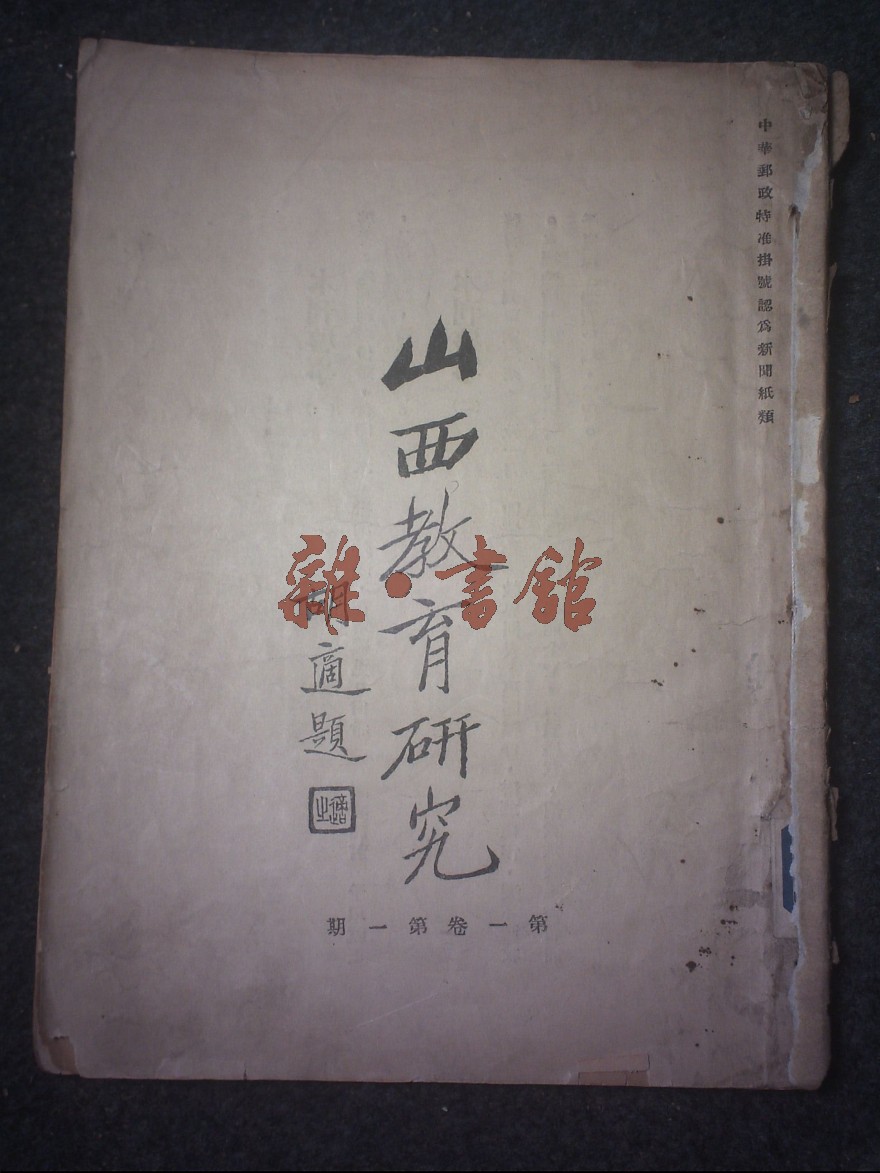 中華郵政特准掛號認爲新聞紙類
山西教育研究
胡適題
適之
第一卷第一期
雜·書館